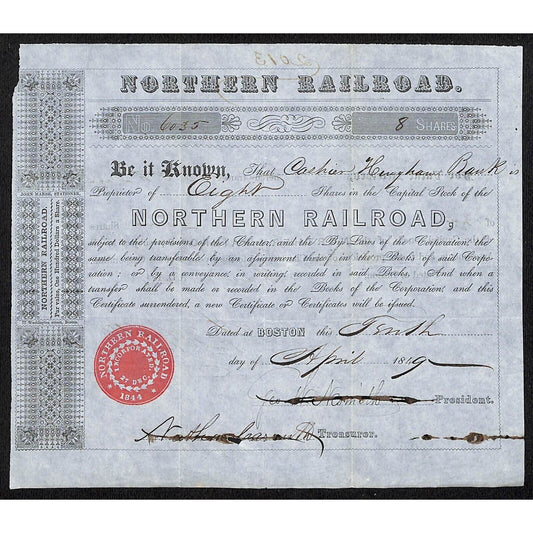 NORTHERN RAILROAD.
No 6035 8 SHARES
Be it Known, That Cashier Hingham Bank is
Proprietor of Eight Shares in the Capital Stock of the
NORTHERN RAILROAD,
subject to the provisions of the Charter, and the By-Laws of the Corporation, the
same being transferable by an assignment thereof in the Books of said Corpo-
ration; or by a conveyance in writing recorded in said Books. And when a
transfer shall be made or recorded in the Books of the Corporation, and this
Certificate surrendered, a new Certificate or Certificates will be issued.
Dated at BOSTON this Tenth
day of April 1849
President.
Treasurer.
NORTHERN RAILROAD
INCORPORATED
27 DEC.
1844
NORTHERN RAILROAD
Par value, One Hundred Dollars a Share.